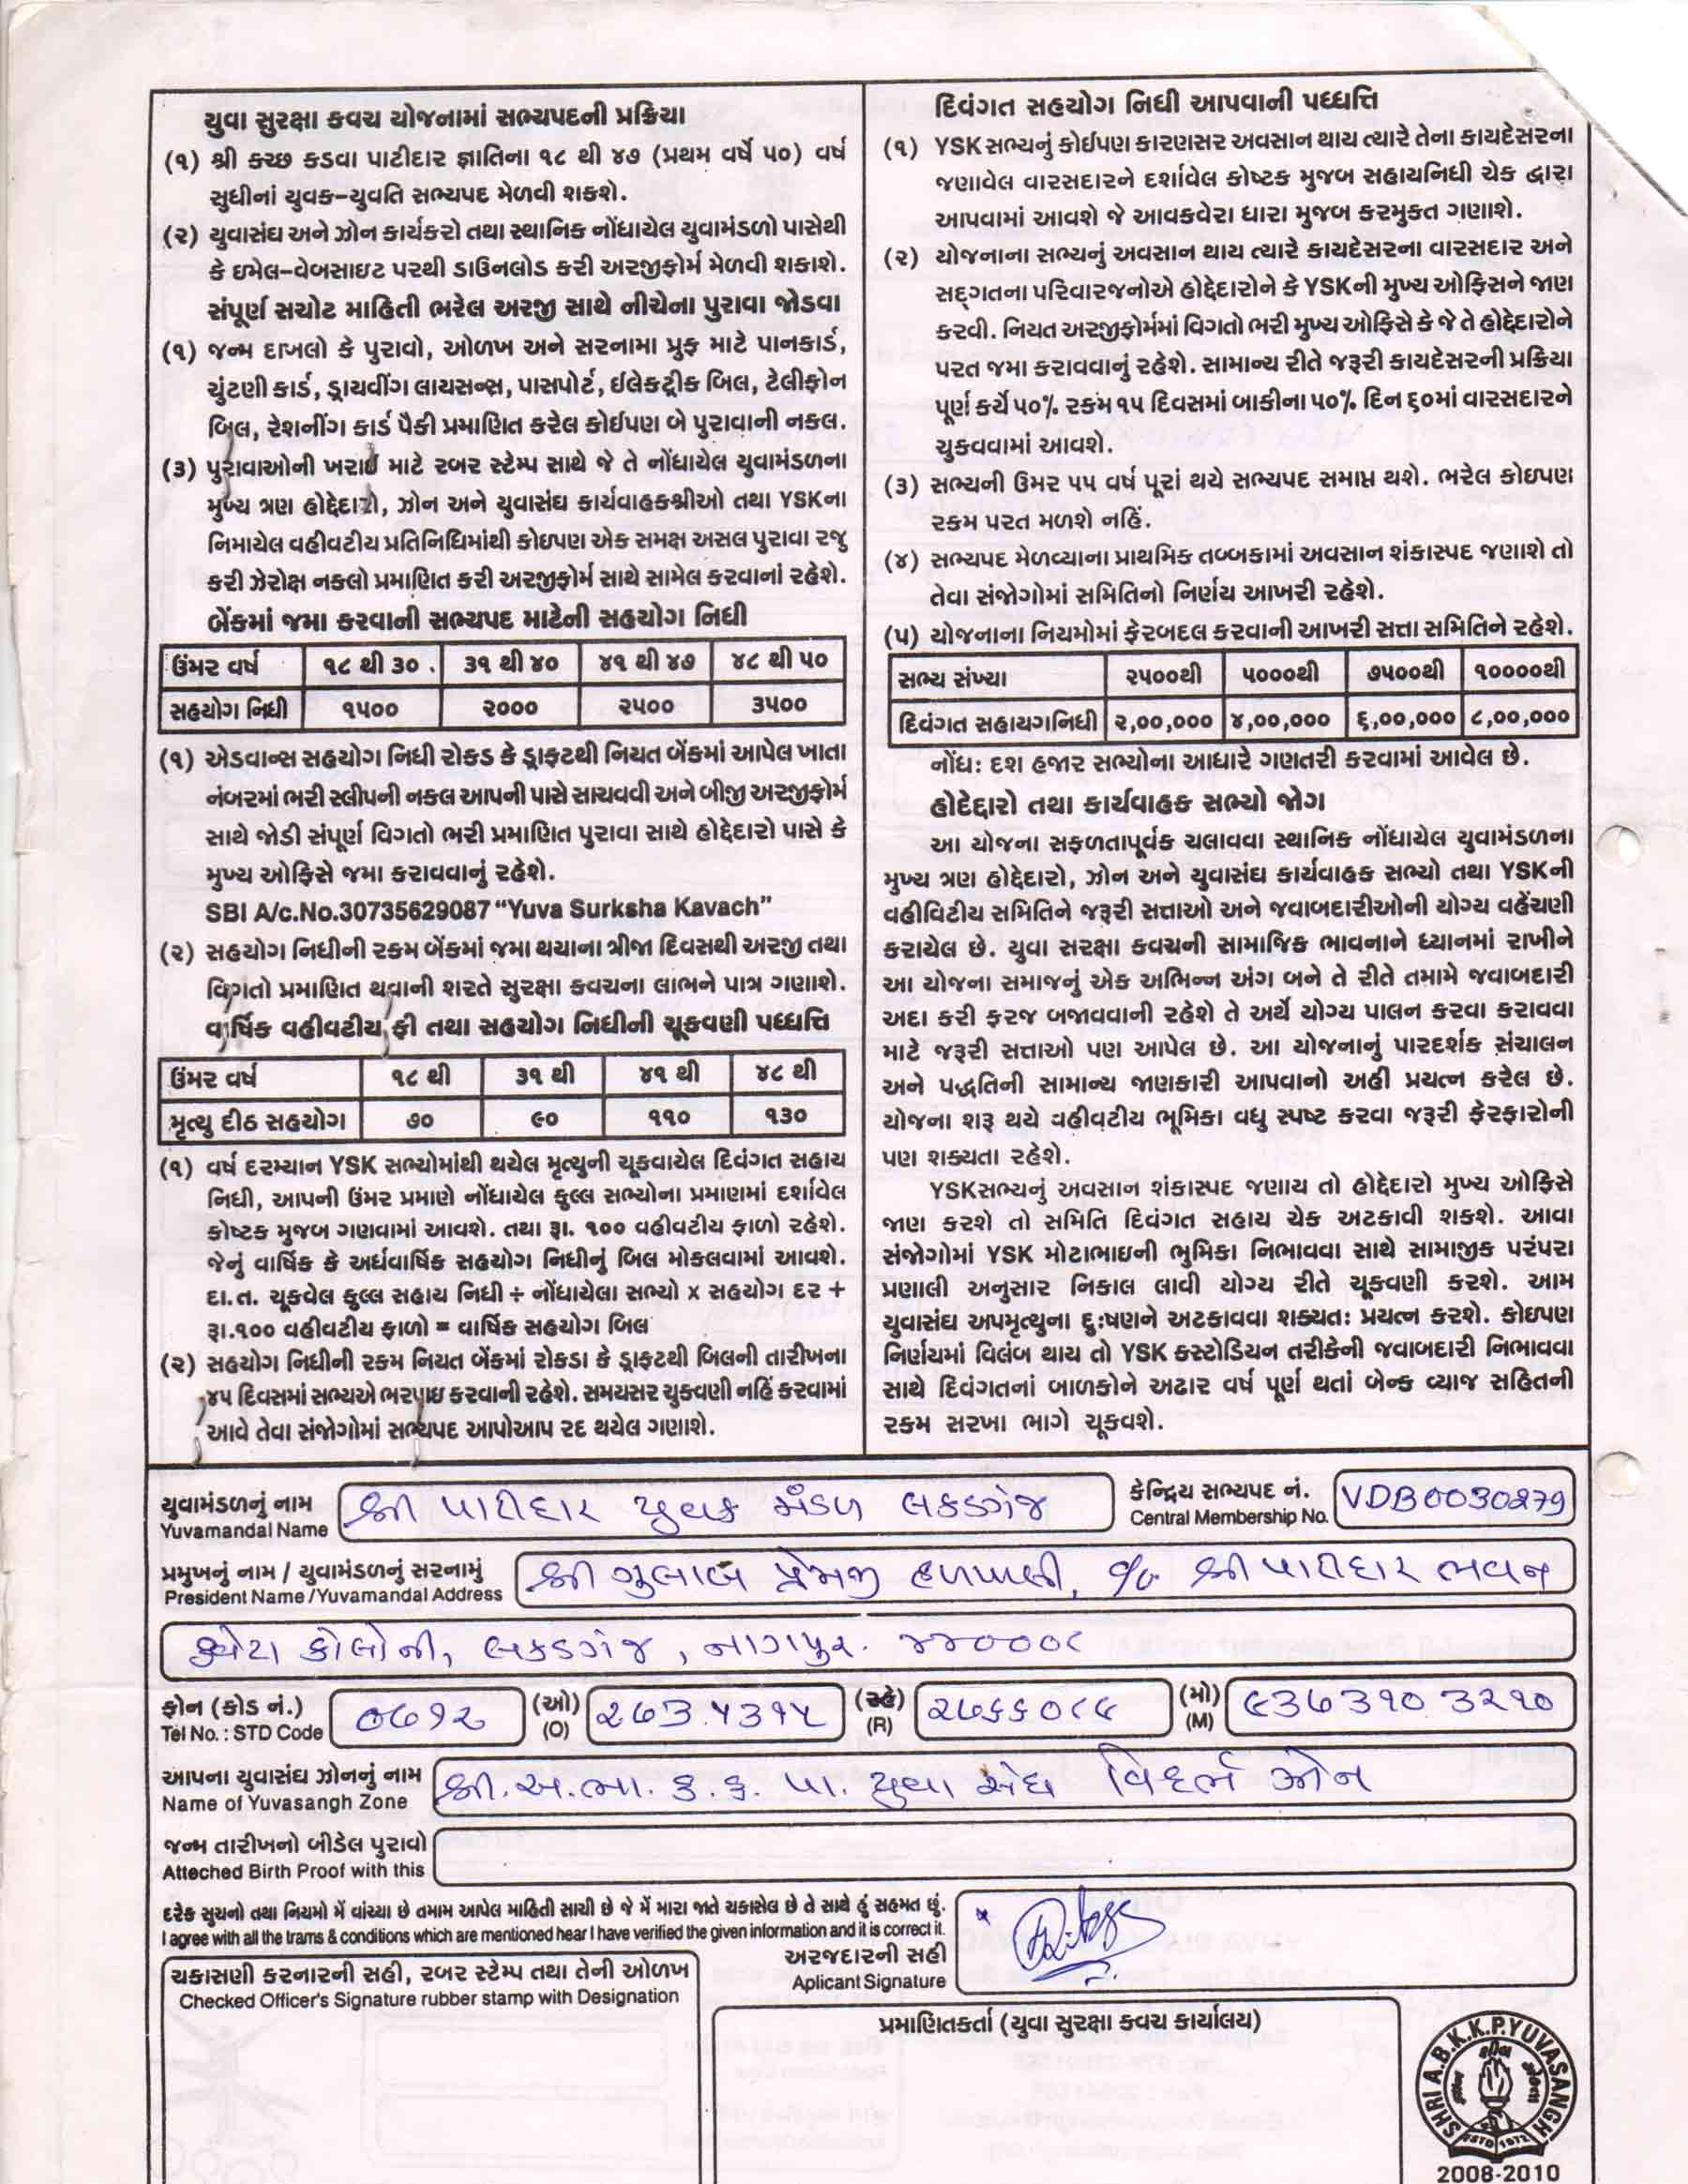 યુવા સુરક્ષા કવચ યોજનામાં સભ્યપદની પ્રક્રિયા
(૧) શ્રી કચ્છ કડવા પાટીદાર જ્ઞાતિના ૧૮ થી ૪૭ (પ્રથમ વર્ષે ૫૦) વર્ષ
સુધીનાં યુવક-યુવતિ સભ્યપદ મેળવી શકશે.
(૨) યુવાસંઘ અને ઝોન કાર્યકરો તથા સ્થાનિક નોંધાયેલ યુવામંડળો પાસેથી
કે ઇમેલ-વેબસાઇટ પરથી ડાઉનલોડ કરી અરજીફોર્મ મેળવી શકાશે.
સંપૂર્ણ સચોટ માહિતી ભરેલ અરજી સાથે નીચેના પુરાવા જોડવા
(૧) જન્મ દાખલો કે પુરાવો, ઓળખ અને સરનામા પ્રુફ માટે પાનકાર્ડ,
ચુંટણી કાર્ડ, ડ્રાયવીંગ લાયસન્સ, પાસપોર્ટ, ઈલેક્ટ્રીક બિલ, ટેલીફોન
બિલ, રેશનીંગ કાર્ડ પૈકી પ્રમાણિત કરેલ કોઈપણ બે પુરાવાની નકલ.
(૩) પુરાવાઓની ખરાઈ માટે રબર સ્ટેમ્પ સાથે જે તે નોંધાયેલ યુવામંડળના
મુખ્ય ત્રણ હોદ્દેદારો, ઝોન અને યુવાસંઘ કાર્યવાહકશ્રીઓ તથા YSKના
નિમાયેલ વહીવટીય પ્રતિનિધિમાંથી કોઇપણ એક સમક્ષ અસલ પુરાવા રજુ
કરી ઝેરોક્ષ નકલો પ્રમાણિત કરી અરજીફોર્મ સાથે સામેલ કરવાનાં રહેશે.
બેંકમાં જમા કરવાની સભ્યપદ માટેની સહયોગ નિધી
ઉંમર વર્ષ ૧૮ થી ૩૦ . ૩૧ થી ૪૦ ૪૧ થી ૪૭ ૪૮ થી ૫૦
સહયોગ નિધી ૧૫૦૦ ૨૦૦૦ ૨૫૦૦ ૩૫૦૦
(૧) એડવાન્સ સહયોગ નિધી રોકડ કે ડ્રાફ્ટથી નિયત બેંકમાં આપેલ ખાતા
નંબરમાં ભરી સ્લીપની નકલ આપની પાસે સાચવવી અને બીજી અરજીફોર્મ
સાથે જોડી સંપૂર્ણ વિગતો ભરી પ્રમાણિત પુરાવા સાથે હોદ્દેદારો પાસે કે
મુખ્ય ઓફિસે જમા કરાવવાનું રહેશે.
SBI A/c.No.30735629087 “Yuva Surksha Kavach”
(૨) સહયોગ નિધીની રકમ બેંકમાં જમા થયાના ત્રીજા દિવસથી અરજી તથા
વિગતો પ્રમાણિત થવાની શરતે સુરક્ષા કવચના લાભને પાત્ર ગણાશે.
વાર્ષિક વહીવટીય ફી તથા સહયોગ નિધીની ચૂકવણી પધ્ધતિ
ઉંમર વર્ષ ૧૮ થી ૩૧ થી ૪૧ થી ૪૮ થી
મૃત્યુ દીઠ સહયોગ ૭૦ ૯૦ ૧૧૦ ૧૩૦
(૧) વર્ષ દરમ્યાન YSK સભ્યોમાંથી થયેલ મૃત્યુની ચૂકવાયેલ દિવંગત સહાય
નિધી, આપની ઉંમર પ્રમાણે નોંધાયેલ કુલ્લ સભ્યોના પ્રમાણમાં દર્શાવેલ
કોષ્ટક મુજબ ગણવામાં આવશે. તથા રૂા. ૧૦૦ વહીવટીય ફાળો રહેશે.
જેનું વાર્ષિક કે અર્ધવાર્ષિક સહયોગ નિધીનું બિલ મોકલવામાં આવશે.
દા.ત. ચૂકવેલ કુલ્લ સહાય નિધી ÷ નોંધાયેલા સભ્યો x સહયોગ દર +
રૂા.૧૦૦ વહીવટીય ફાળો = વાર્ષિક સહયોગ બિલ
(૨) સહયોગ નિધીની રકમ નિયત બેંકમાં રોકડા કે ડ્રાફ્ટથી બિલની તારીખના
૪૫ દિવસમાં સભ્યએ ભરપાઇ કરવાની રહેશે. સમયસર ચુકવણી નહિં કરવામાં
આવે તેવા સંજોગોમાં સભ્યપદ આપોઆપ રદ થયેલ ગણાશે.
દિવંગત સહયોગ નિધી આપવાની પધ્ધતિ
(૧) YSK સભ્યનું કોઇપણ કારણસર અવસાન થાય ત્યારે તેના કાયદેસરના
જણાવેલ વારસદારને દર્શાવેલ કોષ્ટક મુજબ સહાયનિધી ચેક દ્વારા
આપવામાં આવશે જે આવકવેરા ધારા મુજબ કરમુક્ત ગણાશે.
(૨) યોજનાના સભ્યનું અવસાન થાય ત્યારે કાયદેસરના વારસદાર અને
સદ્ગતના પરિવારજનોએ હોદ્દેદારોને કે YSKની મુખ્ય ઓફિસને જાણ
કરવી. નિયત અરજીફોર્મમાં વિગતો ભરી મુખ્ય ઓફિસે કે જે તે હોદ્દેદારોને
પરત જમા કરાવવાનું રહેશે. સામાન્ય રીતે જરૂરી કાયદેસરની પ્રક્રિયા
પૂર્ણ કર્યે ૫૦% રકમ ૧૫ દિવસમાં બાકીના ૫૦% દિન ૬૦માં વારસદારને
ચુકવવામાં આવશે.
(૩) સભ્યની ઉમર ૫૫ વર્ષ પૂરાં થયે સભ્યપદ સમાપ્ત થશે. ભરેલ કોઇપણ
રકમ પરત મળશે નહિં.
(૪) સભ્યપદ મેળવ્યાના પ્રાથમિક તબ્બકામાં અવસાન શંકાસ્પદ જણાશે તો
તેવા સંજોગોમાં સમિતિનો નિર્ણય આખરી રહેશે.
(૫) યોજનાના નિયમોમાં ફેરબદલ કરવાની આખરી સત્તા સમિતિને રહેશે.
સભ્ય સંખ્યા ૨૫૦૦થી ૫૦૦૦થી ૭૫૦૦થી ૧૦૦૦૦થી
દિવંગત સહાયગનિધી ૨,૦૦,૦૦૦ ૪,૦૦,૦૦૦ ૬,૦૦,૦૦૦ ૮,૦૦,૦૦૦
નોંધઃ દશ હજાર સભ્યોના આધારે ગણતરી કરવામાં આવેલ છે.
હોદેદ્દારો તથા કાર્યવાહક સભ્યો જોગ
આ યોજના સફળતાપૂર્વક ચલાવવા સ્થાનિક નોંધાયેલ યુવામંડળના
મુખ્ય ત્રણ હોદ્દેદારો, ઝોન અને યુવાસંઘ કાર્યવાહક સભ્યો તથા YSKની
વહીવિટીય સમિતિને જરૂરી સત્તાઓ અને જવાબદારીઓની યોગ્ય વહેંચણી
કરાયેલ છે. યુવા સરક્ષા કવચની સામાજિક ભાવનાને ધ્યાનમાં રાખીને
આ યોજના સમાજનું એક અભિન્ન અંગ બને તે રીતે તમામે જવાબદારી
અદા કરી ફરજ બજાવવાની રહેશે તે અર્થે યોગ્ય પાલન કરવા કરાવવા
માટે જરૂરી સત્તાઓ પણ આપેલ છે. આ યોજનાનું પારદર્શક સંચાલન
અને પદ્ધતિની સામાન્ય જાણકારી આપવાનો અહીં પ્રયત્ન કરેલ છે.
યોજના શરૂ થયે વહીવટીય ભૂમિકા વધુ સ્પષ્ટ કરવા જરૂરી ફેરફારોની
પણ શક્યતા રહેશે.
YSKસભ્યનું અવસાન શંકાસ્પદ જણાય તો હોદ્દેદારો મુખ્ય ઓફિસે
જાણ કરશે તો સમિતિ દિવંગત સહાય ચેક અટકાવી શકશે. આવા
સંજોગોમાં YSK મોટાભાઇની ભુમિકા નિભાવવા સાથે સામાજીક પરંપરા
પ્રણાલી અનુસાર નિકાલ લાવી યોગ્ય રીતે ચૂકવણી કરશે. આમ
યુવાસંઘ અપમૃત્યુના દુઃષણને અટકાવવા શક્યતઃ પ્રયત્ન કરશે. કોઇપણ
નિર્ણયમાં વિલંબ થાય તો YSK કસ્ટોડિયન તરીકેની જવાબદારી નિભાવવા
સાથે દિવંગતનાં બાળકોને અઢાર વર્ષ પૂર્ણ થતાં બેન્ક વ્યાજ સહિતની
રકમ સરખા ભાગે ચૂકવશે.
યુવામંડળનું નામ શ્રી પાટીદાર યુવક મંડળ લકડગંજ કેન્દ્રિય સભ્યપદ નં. VDB0030279
Yuvamandal Name Central Membership No.
પ્રમુખનું નામ / યુવામંડળનું સરનામું શ્રી ગુલાબ પ્રેમજી હળપાણી, C/o. શ્રી પાટીદાર ભવન
President Name /Yuvamandal Address
ક્વેટા કોલોની, લકડગંજ, નાગપુર. ૪૪૦૦૦૮
ફોન (કોડ નં.) ૦૭૧૨ (ઓ) ૨૭૩૫૩૧૫ (રહે) ૨૭૬૬૦૮૯ (મો) ૯૩૭૩૧૦૩૨૧૦
Tel No. : STD Code (O) (R) (M)
આપના યુવાસંઘ ઝોનનું નામ શ્રી.અ.ભા. ક.ક. પા. યુવા સંઘ વિદર્ભ ઝોન
Name of Yuvasangh Zone
જન્મ તારીખનો બીડેલ પુરાવો
Atteched Birth Proof with this
દરેક સુચનો તથા નિયમો મેં વાંચ્યા છે તમામ આપેલ માહિતી સાચી છે જે મેં મારા જાતે ચકાસેલ છે તે સાથે હું સહમત છું.
I agree with all the trams & conditions which are mentioned hear I have verified the given information and it is correct it.
અરજદારની સહી
Aplicant Signature
ચકાસણી કરનારની સહી, રબર સ્ટેમ્પ તથા તેની ઓળખ
Checked Officer's Signature rubber stamp with Designation
પ્રમાણિતકર્તા (યુવા સુરક્ષા કવચ કાર્યાલય)
SHRI A.B.K.K.P.YUVASANGH
ESTD 1972
2008-2010